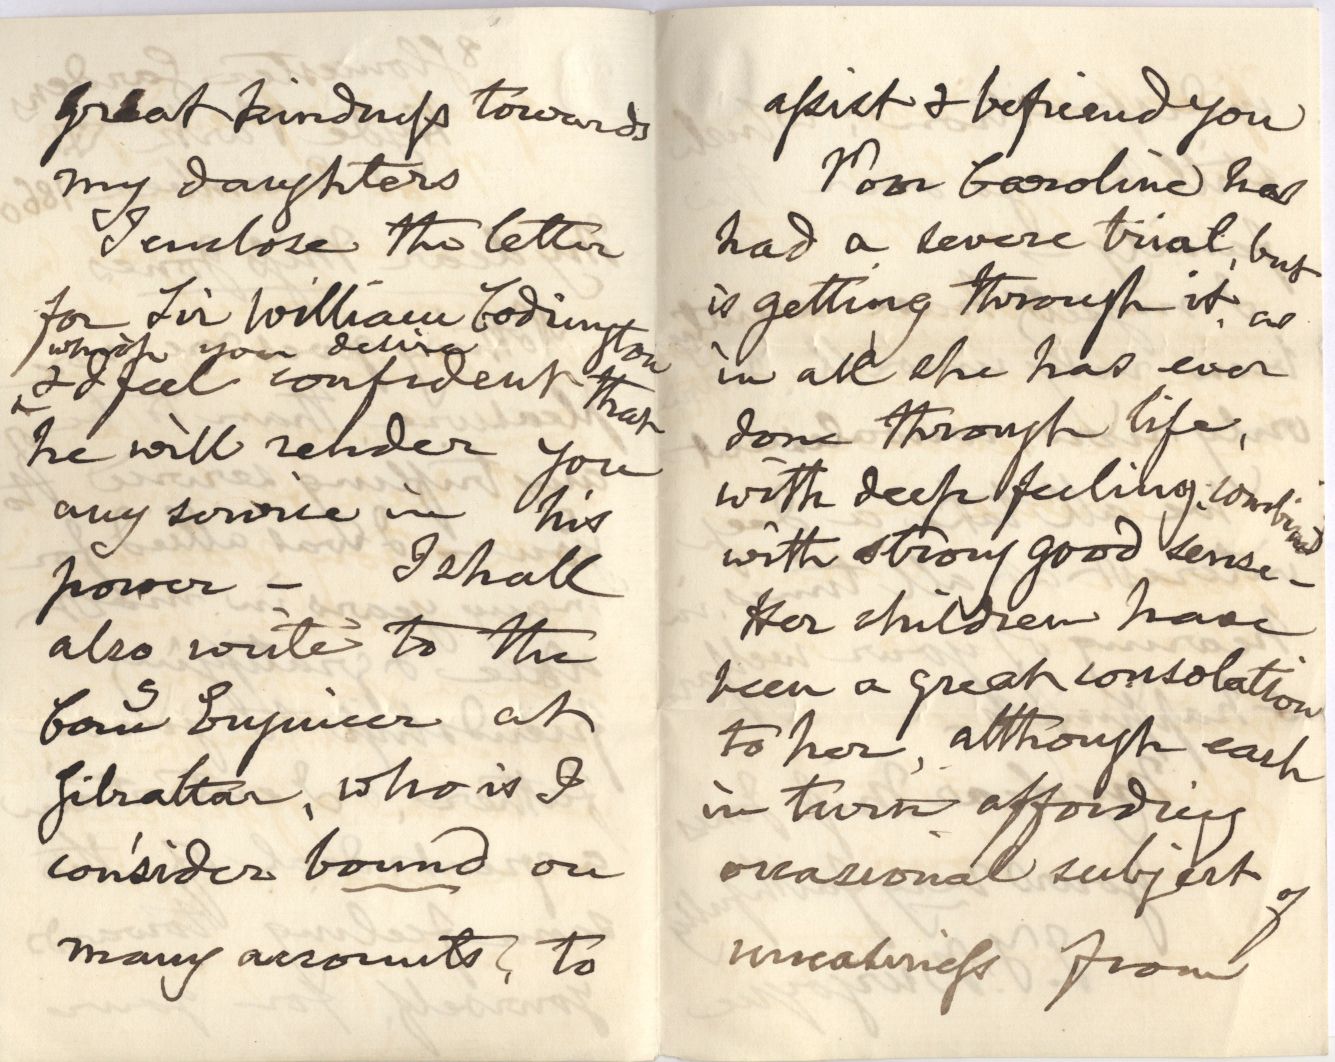 great kindness towards
my daughters
I enclose the letter
for Sir William Codrington
which you desire
& I feel confident that
he will render you
any service in his
power – I shall
also write to the
Comg Engineer at
Gibraltar, who is I
consider bound on
many accounts, to
assist & befriend you
Poor Caroline has
had a severe trial, but
is getting through it, as
in all she has ever
done through life,
with deep feeling, combined
with strong good sense –
Her children have
been a great consolation
to her, although each
in turn affording
occasional subject of
uneasiness from